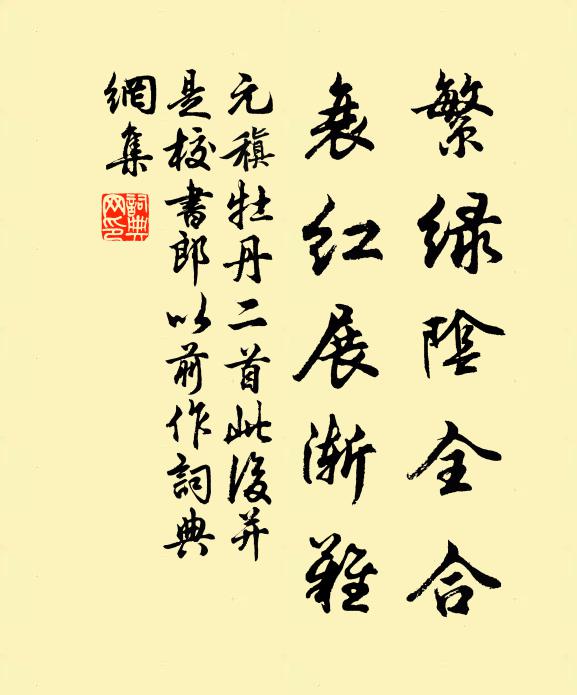 繁绿陰全合
衰红展渐難
元稹牡丹二首此後并
是校書郎以前作詞典
網集
詞典網印